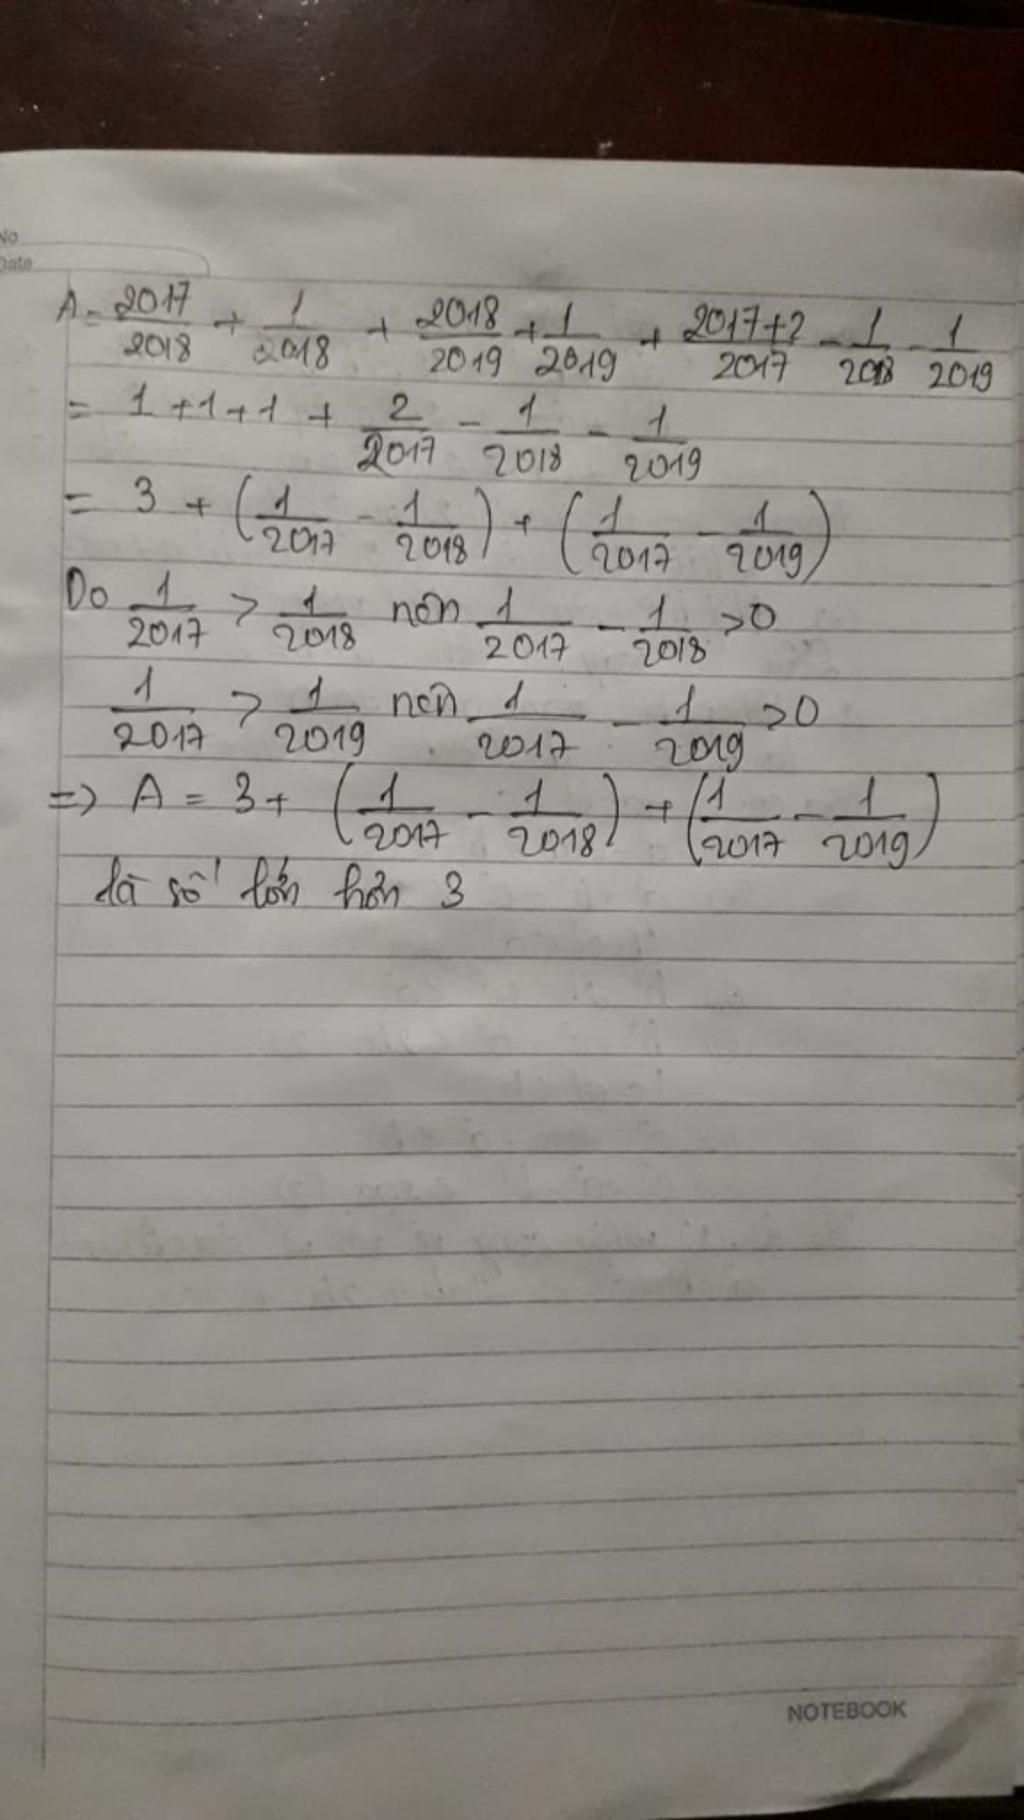 No
Date
A = 2017/2018 + 1/2018 + 2018/2019 + 1/2019 + (2017+2)/2017 - 1/2018 - 1/2019
= 1 + 1 + 1 + 2/2017 - 1/2018 - 1/2019
= 3 + (1/2017 - 1/2018) + (1/2017 - 1/2019)
Do 1/2017 > 1/2018 nên 1/2017 - 1/2018 > 0
1/2017 > 1/2019 nên 1/2017 - 1/2019 > 0
=> A = 3 + (1/2017 - 1/2018) + (1/2017 - 1/2019)
là số lớn hơn 3
NOTEBOOK